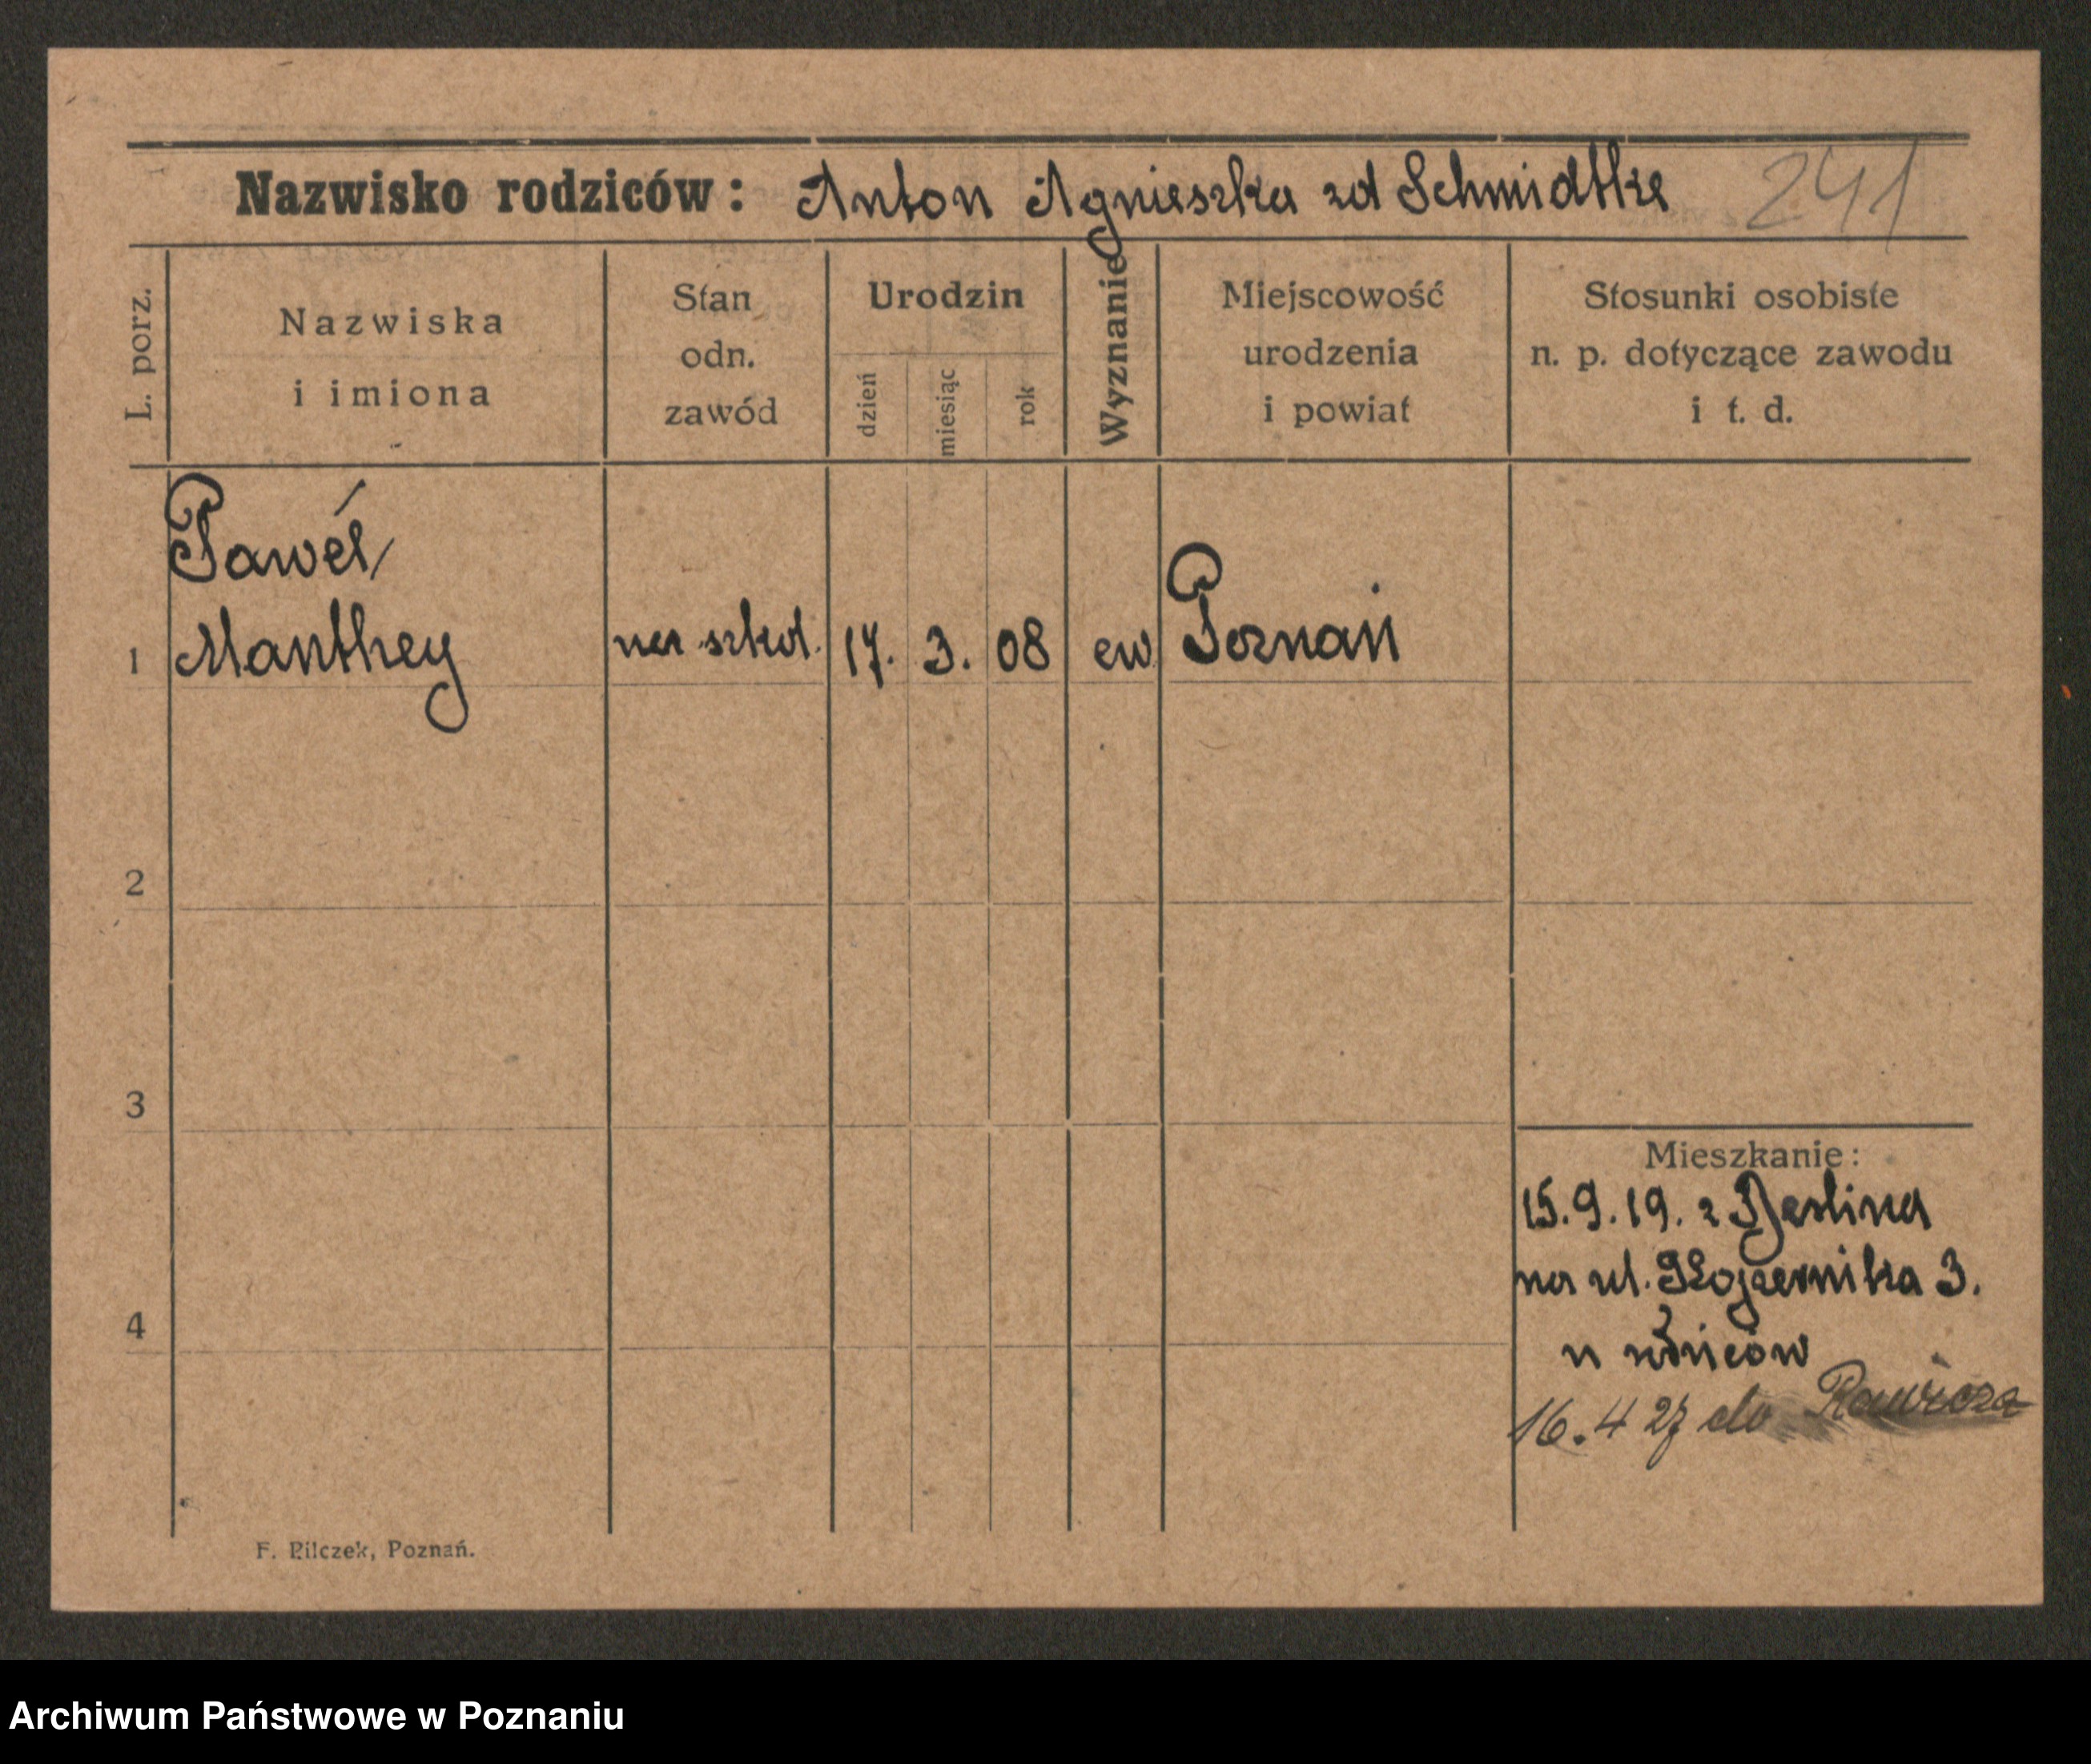 Nazwisko rodziców: Anton Agnieszka zd Schmidtke 241
L. porz.
Nazwiska
i imiona
Stan
odn.
zawód
Urodzin
dzień
miesiąc
rok
Wyznanie
Miejscowość
urodzenia
i powiat
Stosunki osobiste
n. p. dotyczące zawodu
i t. d.
Paweł
1 Manthey na szkol. 17. 3. 08 ew Poznań
2
3
4
Mieszkanie:
15.9.19. z Berlina
na ul. Kopernika 3.
u
16.4 27 do Rawicza
F. Pilczek, Poznań.
Archiwum Państwowe w Poznaniu